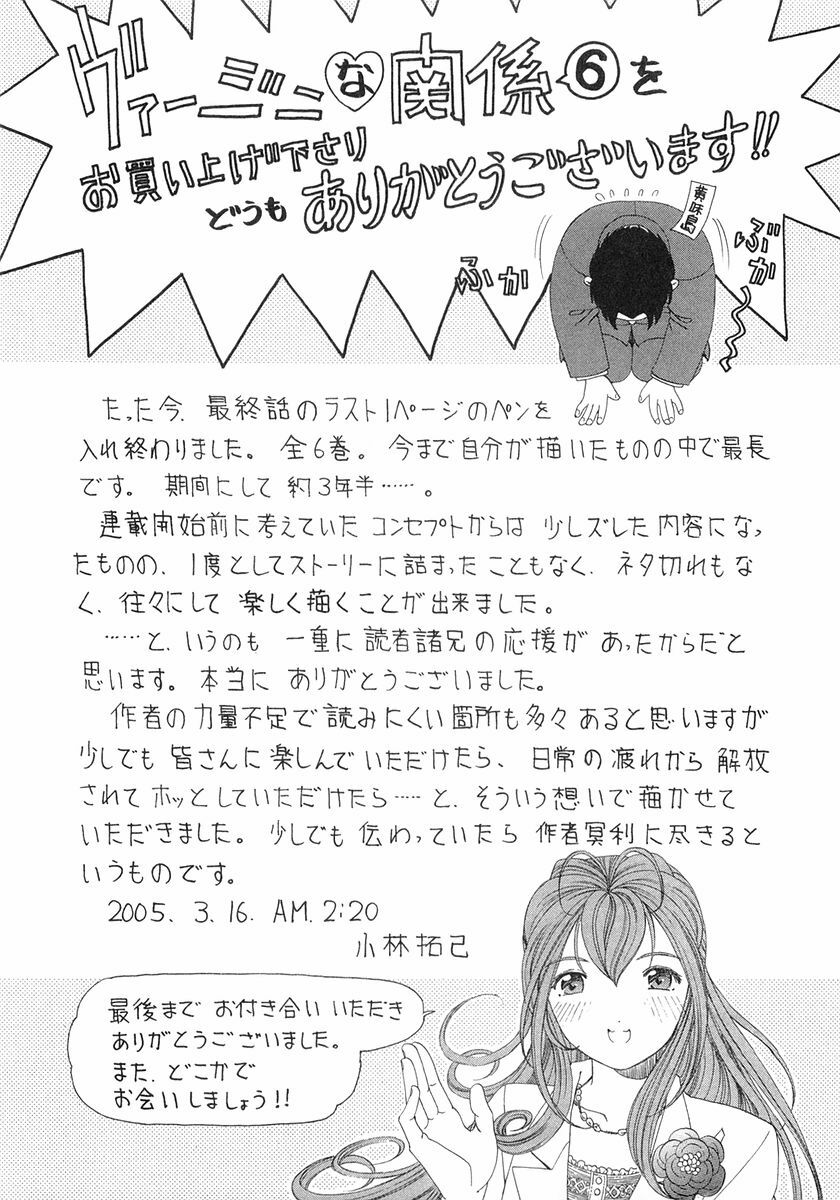 ヴァージニな関係⑥を
お買い上げ下さり
どうもありがとうございます!!
黄味島
ふか
ぶか
たった今、最終話のラスト1ページのペンを
入れ終わりました。全6巻。今まで自分が描いたものの中で最長
です。期間にして約3年半……。
連載開始前に考えていたコンセプトからは少しズレた内容になっ
たものの、1度としてストーリーに詰まったこともなく、ネタ切れもな
く、往々にして楽しく描くことが出来ました。
……と、いうのも一重に読者諸兄の応援があったからだと
思います。本当にありがとうございました。
作者の力量不足で読みにくい箇所も多々あると思いますが
少しでも皆さんに楽しんでいただけたら、日常の疲れから解放
されてホッとしていただけたら……と、そういう想いで描かせて
いただきました。少しでも伝わっていたら作者冥利に尽きると
いうものです。
2005. 3.16. AM.2:20
小林拓己
最後までお付き合いいただき
ありがとうございました。
また、どこかで
お会いしましょう!!